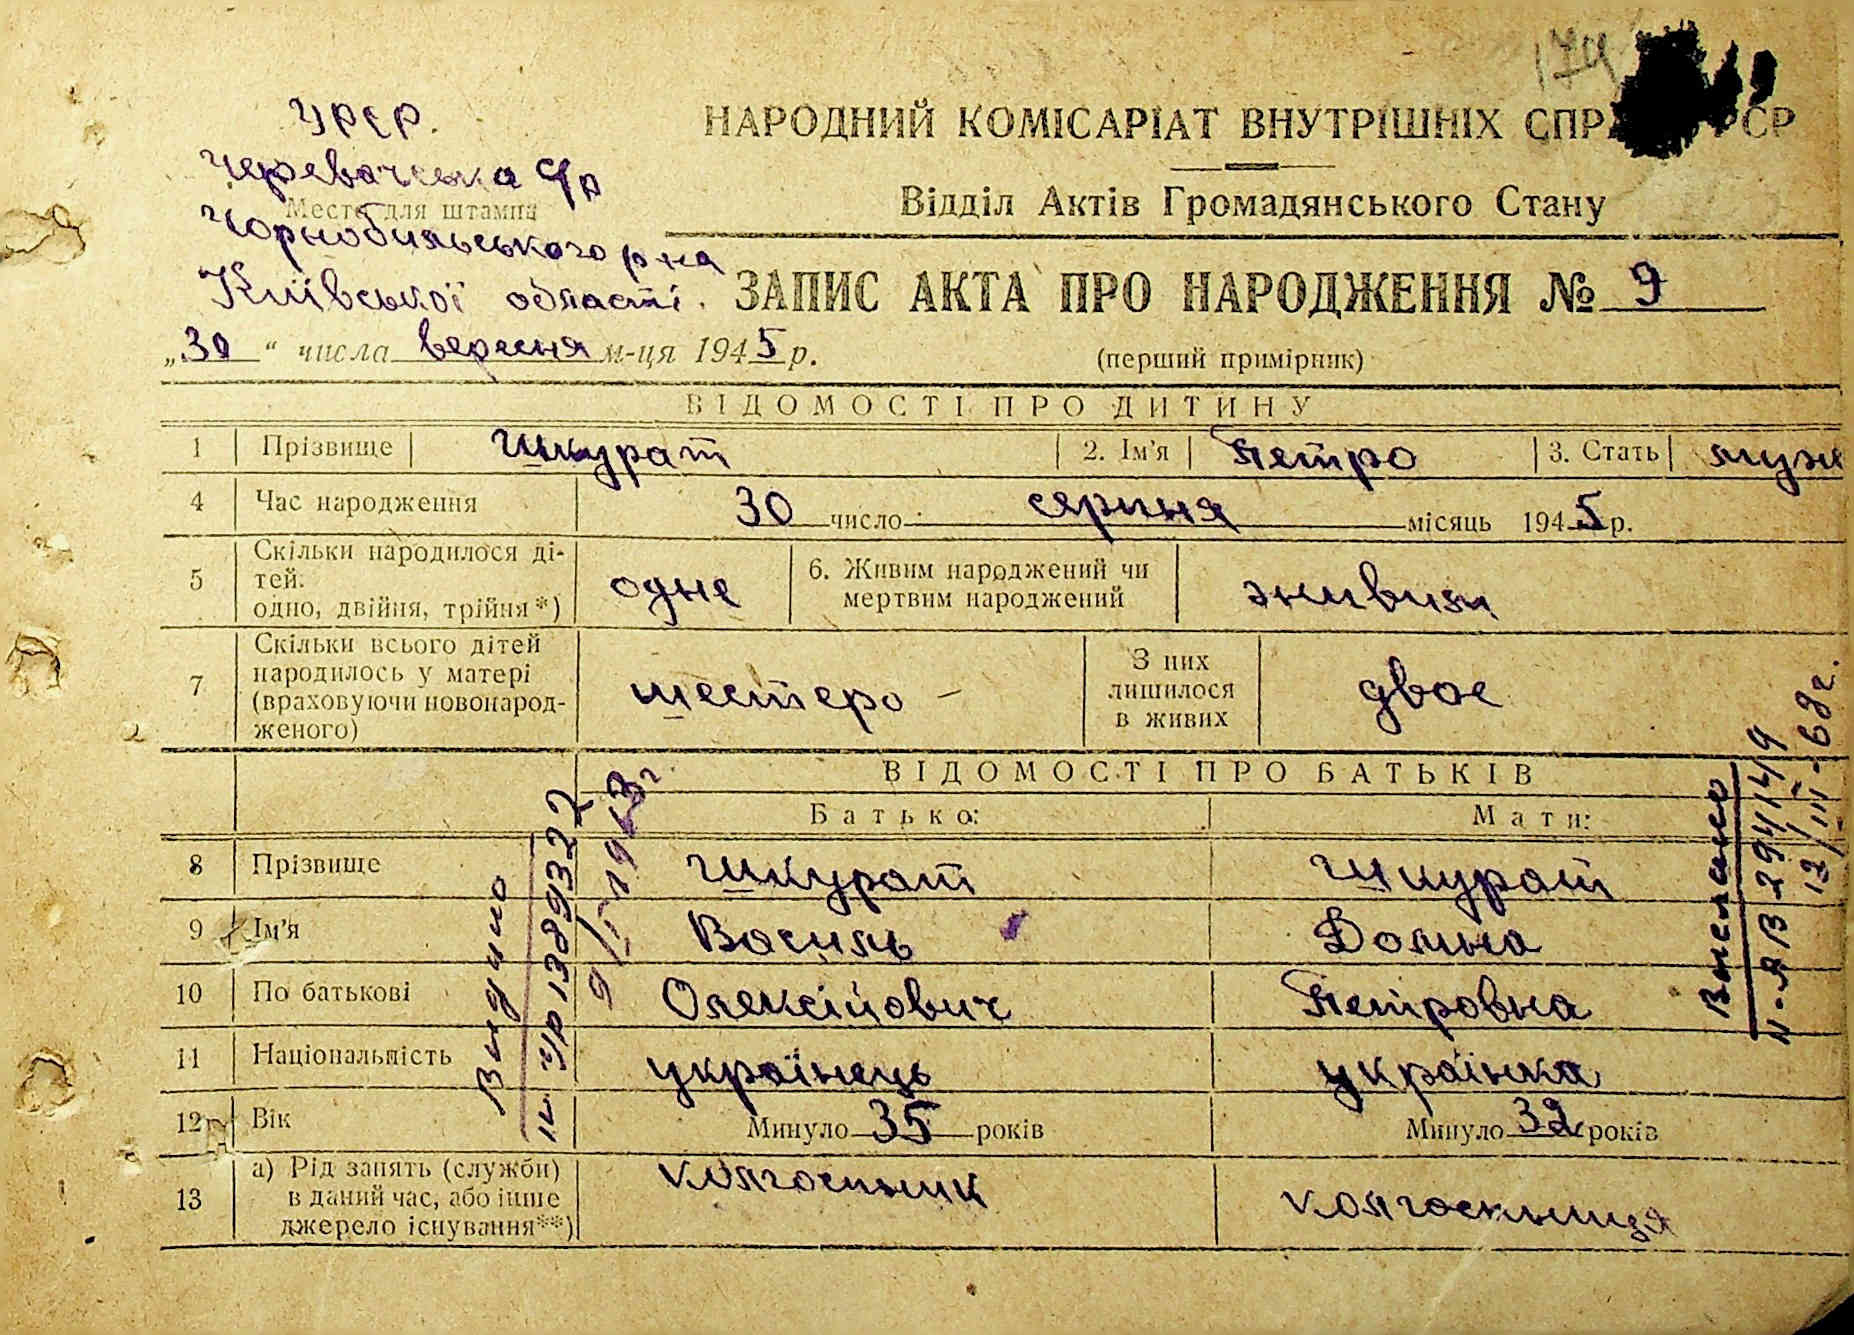 УРСР.
Черевачська с/р
Место для штампа
Чорнобильського р-на
Київської області.
НАРОДНИЙ КОМІСАРІАТ ВНУТРІШНІХ СПРАВ УРСР
Відділ Актів Громадянського Стану
ЗАПИС АКТА ПРО НАРОДЖЕННЯ № 9
„30“ числа вересня м-ця 1945 р.
(перший примірник)
ВІДОМОСТІ ПРО ДИТИНУ
1 Прізвище Шкурат 2. Ім'я Петро 3. Стать муж
4 Час народження 30 число серпня місяць 1945 р.
5 Скільки народилося ді-
тей:
одно, двійня, трійня*) одне
6. Живим народжений чи
мертвим народжений живим
7 Скільки всього дітей
народилось у матері
(враховуючи новонарод-
женого) шестеро
З них
лишилося
в живих двое
ВІДОМОСТІ ПРО БАТЬКІВ
Батько: Мати:
8 Прізвище Шкурат Шкурат
9 Ім'я Василь Домна
10 По батькові Олексійович Петровна
11 Національність українець українка
12 Вік Минуло 35 років Минуло 32 років
13 а) Рід занять (служби)
в даний час, або інше
джерело існування**) колгоспник колгоспниця
Видано
1389322
Выслано
II-ЯВ 294149
13/III-68г.
174